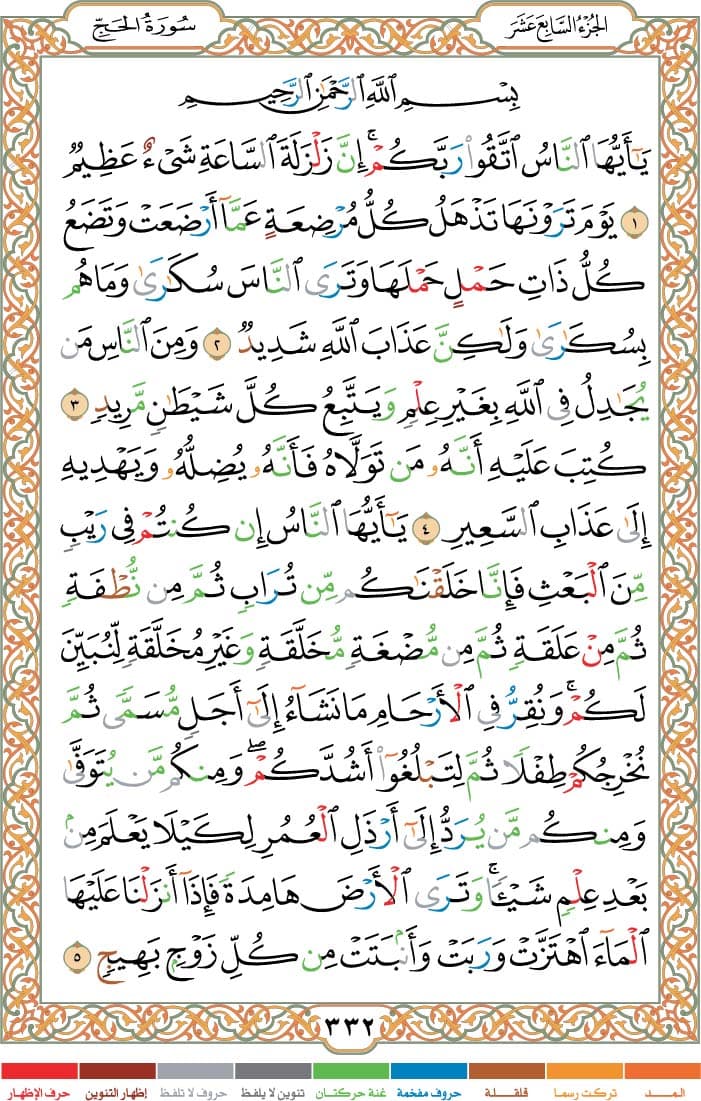 الجزء السابع عشر
سورة الحج
بِسْمِ ٱللَّهِ ٱلرَّحْمَٰنِ ٱلرَّحِيمِ
يَٰٓأَيُّهَا ٱلنَّاسُ ٱتَّقُوا۟ رَبَّكُمْ ۚ إِنَّ زَلْزَلَةَ ٱلسَّاعَةِ شَىْءٌ عَظِيمٌ
١ يَوْمَ تَرَوْنَهَا تَذْهَلُ كُلُّ مُرْضِعَةٍ عَمَّآ أَرْضَعَتْ وَتَضَعُ
كُلُّ ذَاتِ حَمْلٍ حَمْلَهَا وَتَرَى ٱلنَّاسَ سُكَٰرَىٰ وَمَا هُم
بِسُكَٰرَىٰ وَلَٰكِنَّ عَذَابَ ٱللَّهِ شَدِيدٌ ٢ وَمِنَ ٱلنَّاسِ مَن
يُجَٰدِلُ فِى ٱللَّهِ بِغَيْرِ عِلْمٍ وَيَتَّبِعُ كُلَّ شَيْطَٰنٍ مَّرِيدٍ ٣
كُتِبَ عَلَيْهِ أَنَّهُۥ مَن تَوَلَّاهُ فَأَنَّهُۥ يُضِلُّهُۥ وَيَهْدِيهِ
إِلَىٰ عَذَابِ ٱلسَّعِيرِ ٤ يَٰٓأَيُّهَا ٱلنَّاسُ إِن كُنتُمْ فِى رَيْبٍ
مِّنَ ٱلْبَعْثِ فَإِنَّا خَلَقْنَٰكُم مِّن تُرَابٍ ثُمَّ مِن نُّطْفَةٍ
ثُمَّ مِنْ عَلَقَةٍ ثُمَّ مِن مُّضْغَةٍ مُّخَلَّقَةٍ وَغَيْرِ مُخَلَّقَةٍ لِّنُبَيِّنَ
لَكُمْ ۚ وَنُقِرُّ فِى ٱلْأَرْحَامِ مَا نَشَآءُ إِلَىٰٓ أَجَلٍ مُّسَمًّى ثُمَّ
نُخْرِجُكُمْ طِفْلًا ثُمَّ لِتَبْلُغُوٓا۟ أَشُدَّكُمْ ۖ وَمِنكُم مَّن يُتَوَفَّىٰ
وَمِنكُم مَّن يُرَدُّ إِلَىٰٓ أَرْذَلِ ٱلْعُمُرِ لِكَيْلَا يَعْلَمَ مِنۢ
بَعْدِ عِلْمٍ شَيْـًٔا ۚ وَتَرَى ٱلْأَرْضَ هَامِدَةً فَإِذَآ أَنزَلْنَا عَلَيْهَا
ٱلْمَآءَ ٱهْتَزَّتْ وَرَبَتْ وَأَنۢبَتَتْ مِن كُلِّ زَوْجٍۭ بَهِيجٍ ٥
٣٣٢
المـــد تركت رسما قلقـلـة حروف مفخمة غنة حركتان تنوين لا يلفظ حروف لا تلفظ إظهار التنوين حرف الإظهار